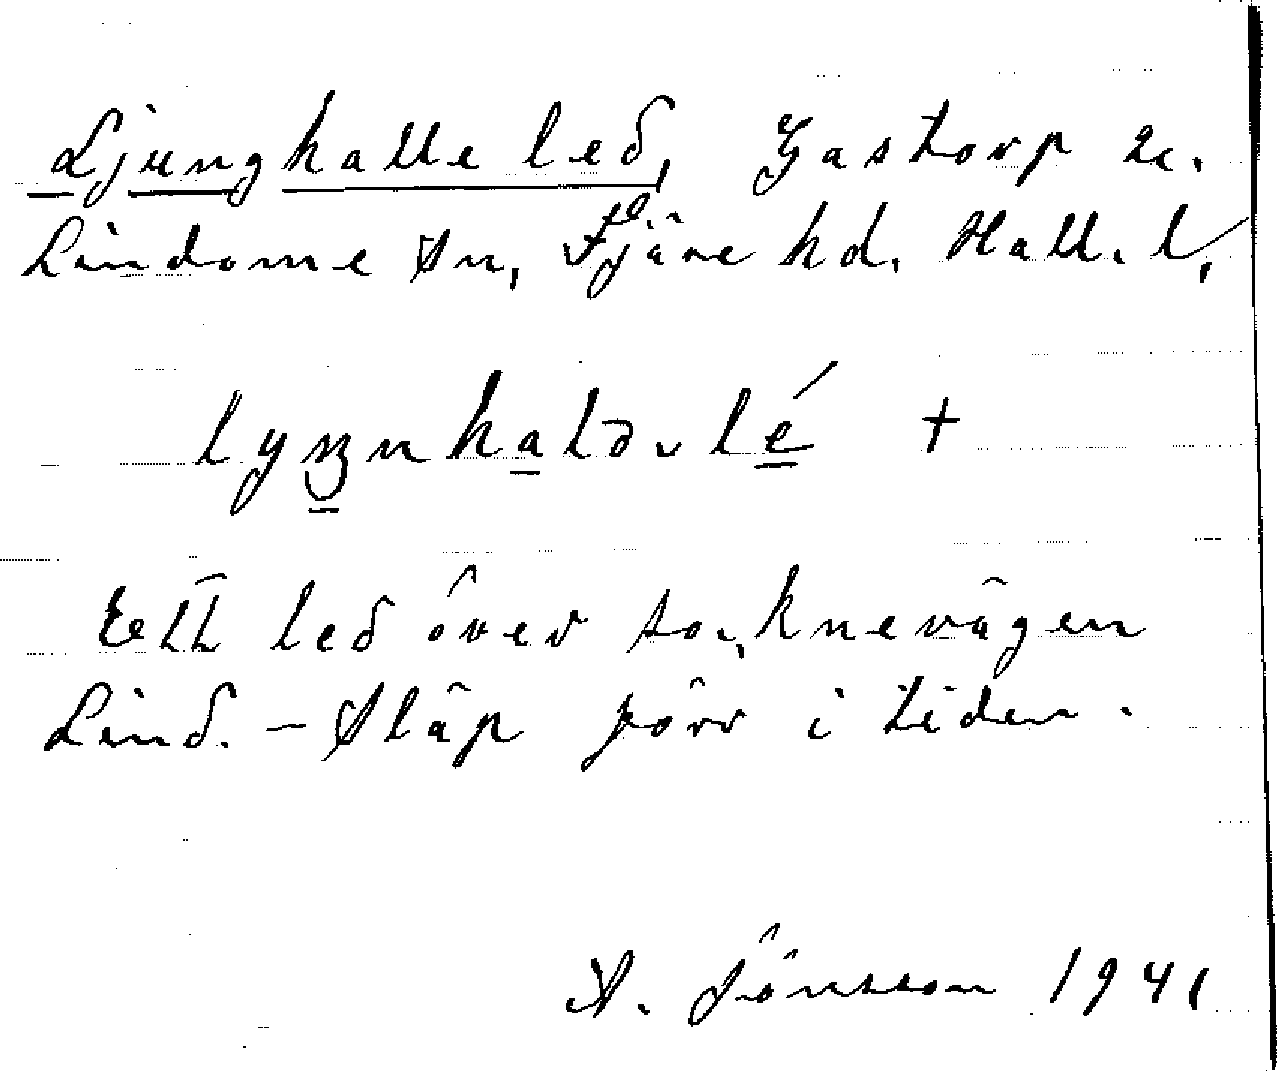 Ljunghalle led, Gastorp 2c.
Lindome sn, Fjäre hd. Hall. l,
led över socknevägen
Lind. – Släp förr i tiden.
A. Jönsson 1941